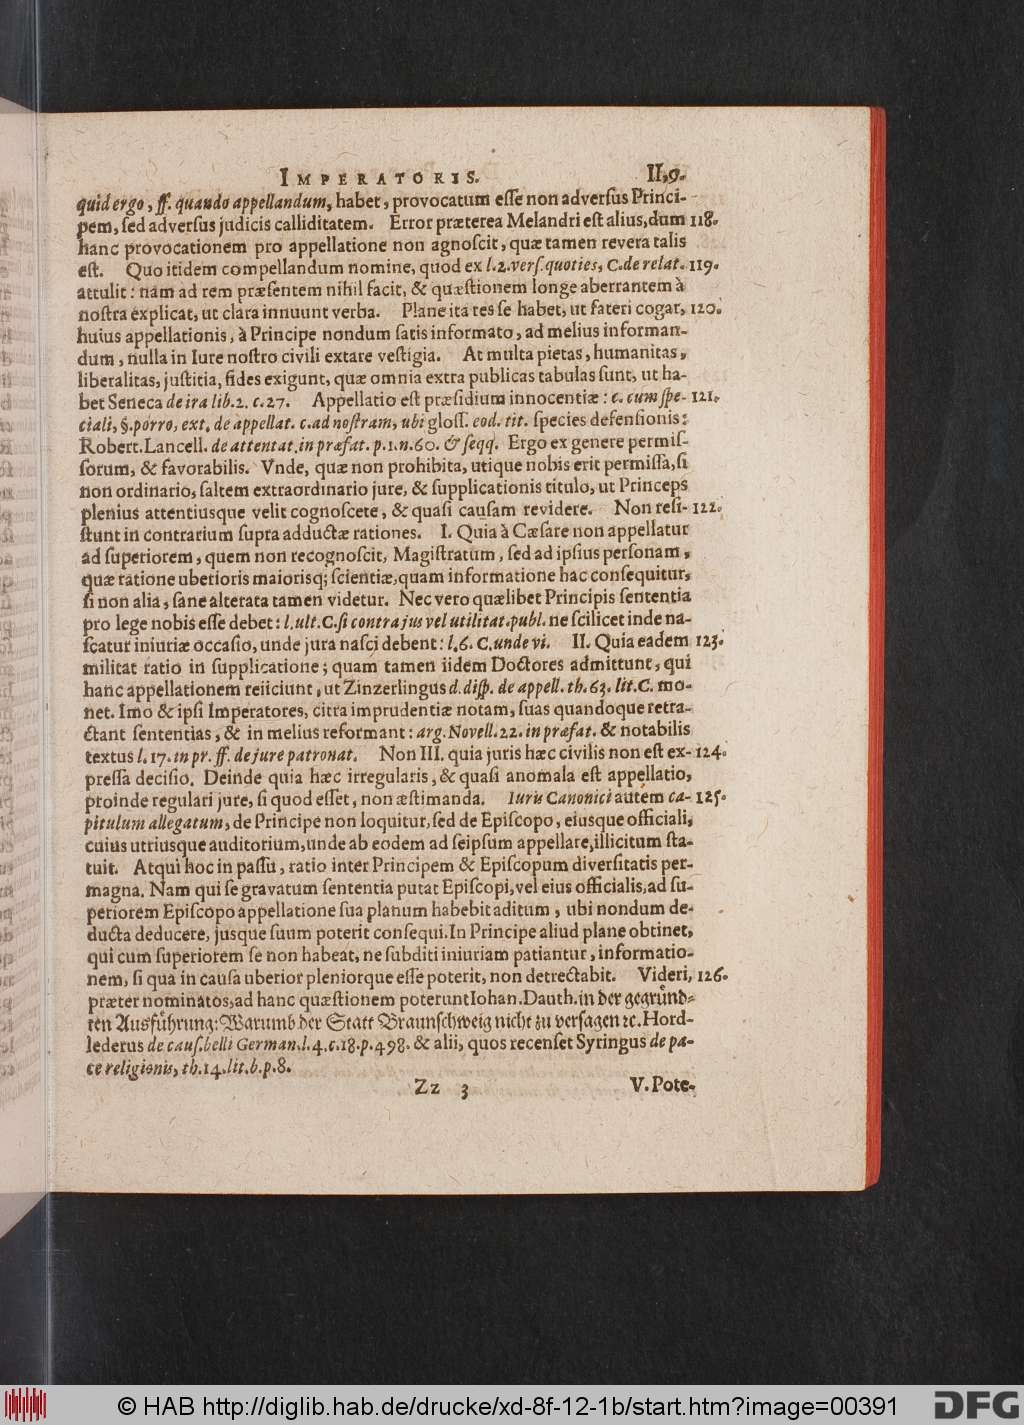 IMPERATORIS. II,9.
quid ergo, ff. quando appellandum, habet, provocatum eſſe non adverſus Princi-
pem, ſed adverſus judicis calliditatem. Error præterea Melandri eſt alius, dum 118.
hanc provocationem pro appellatione non agnoſcit, quæ tamen revera talis
eſt. Quo itidem compellandum nomine, quod ex l. 2. verſ. quoties, C. de relat. 119.
attulit: nam ad rem præſentem nihil facit, & quæſtionem longe aberrantem à
noſtra explicat, ut clara innuunt verba. Plane ita res ſe habet, ut fateri cogar, 120.
huius appellationis, à Principe nondum ſatis informato, ad melius informan-
dum, nulla in Iure noſtro civili extare veſtigia. At multa pietas, humanitas,
liberalitas, juſtitia, fides exigunt, quæ omnia extra publicas tabulas ſunt, ut ha-
bet Seneca de ira lib. 2. c. 27. Appellatio eſt præſidium innocentiæ: c. cum ſpe- 121.
ciali, §. porro, ext. de appellat. c. ad noſtram, ubi gloſſ. eod. tit. ſpecies defenſionis:
Robert. Lancell. de attentat. in præfat. p. 1. n. 60. & ſeqq. Ergo ex genere permiſ-
ſorum, & favorabilis. Vnde, quæ non prohibita, utique nobis erit permiſſa, ſi
non ordinario, ſaltem extraordinario jure, & ſupplicationis titulo, ut Princeps
plenius attentiusque velit cognoſcete, & quaſi cauſam revidere. Non reſi- 122.
ſtunt in contrarium ſupra adductæ rationes. I. Quia à Cæſare non appellatur
ad ſuperiorem, quem non recognoſcit, Magiſtratum, ſed ad ipſius perſonam,
quæ ratione uberioris maiorisq; ſcientiæ, quam informatione hac conſequitur,
ſi non alia, ſane alterata tamen videtur. Nec vero quælibet Principis ſententia
pro lege nobis eſſe debet: l. ult. C. ſi contra jus vel utilitat. publ. ne ſcilicet inde na-
ſcatur iniuriæ occaſio, unde jura naſci debent: l. 6. C. unde vi. II. Quia eadem 123.
militat ratio in ſupplicatione; quam tamen iidem Doctores admittunt, qui
hanc appellationem reiiciunt, ut Zinzerlingus d. diſp. de appell. th. 63. lit. C. mo-
net. Imo & ipſi Imperatores, citra imprudentiæ notam, ſuas quandoque retra-
ctant ſententias, & in melius reformant: arg. Novell. 22. in præfat. & notabilis
textus l. 17. in pr. ff. de jure patronat. Non III. quia juris hæc civilis non eſt ex- 124.
preſſa deciſio. Deinde quia hæc irregularis, & quaſi anomala eſt appellatio,
proinde regulari jure, ſi quod eſſet, non æſtimanda. Iuris Canonici autem ca- 125.
pitulum allegatum, de Principe non loquitur, ſed de Epiſcopo, eiusque officiali,
cuius utriusque auditorium, unde ab eodem ad ſeipſum appellare, illicitum ſta-
tuit. Atqui hoc in paſſu, ratio inter Principem & Epiſcopum diverſitatis per-
magna. Nam qui ſe gravatum ſententia putat Epiſcopi, vel eius officialis, ad ſu-
periorem Epiſcopo appellatione ſua planum habebit aditum, ubi nondum de-
ducta deducere, jusque ſuum poterit conſequi. In Principe aliud plane obtinet,
qui cum ſuperiorem ſe non habeat, ne ſubditi iniuriam patiantur, informatio-
nem, ſi qua in cauſa uberior pleniorque eſſe poterit, non detrectabit. Videri, 126.
præter nominatos, ad hanc quæſtionem poterunt Iohan. Dauth. in der gegründ-
ten Ausführung: Warumb der Statt Braunſchweig nicht zu verſagen ꝛc. Hord-
lederus de cauſ. belli German. l. 4. c. 18. p. 498. & alii, quos recenſet Syringus de pa-
ce religionis, th. 14. lit. b. p. 8.
Zz 3 V. Pote-
© HAB http://diglib.hab.de/drucke/xd-8f-12-1b/start.htm?image=00391 DFG